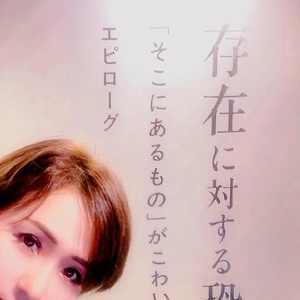 存在に対する恐
「そこにあるもの」がこわい
エピローグ